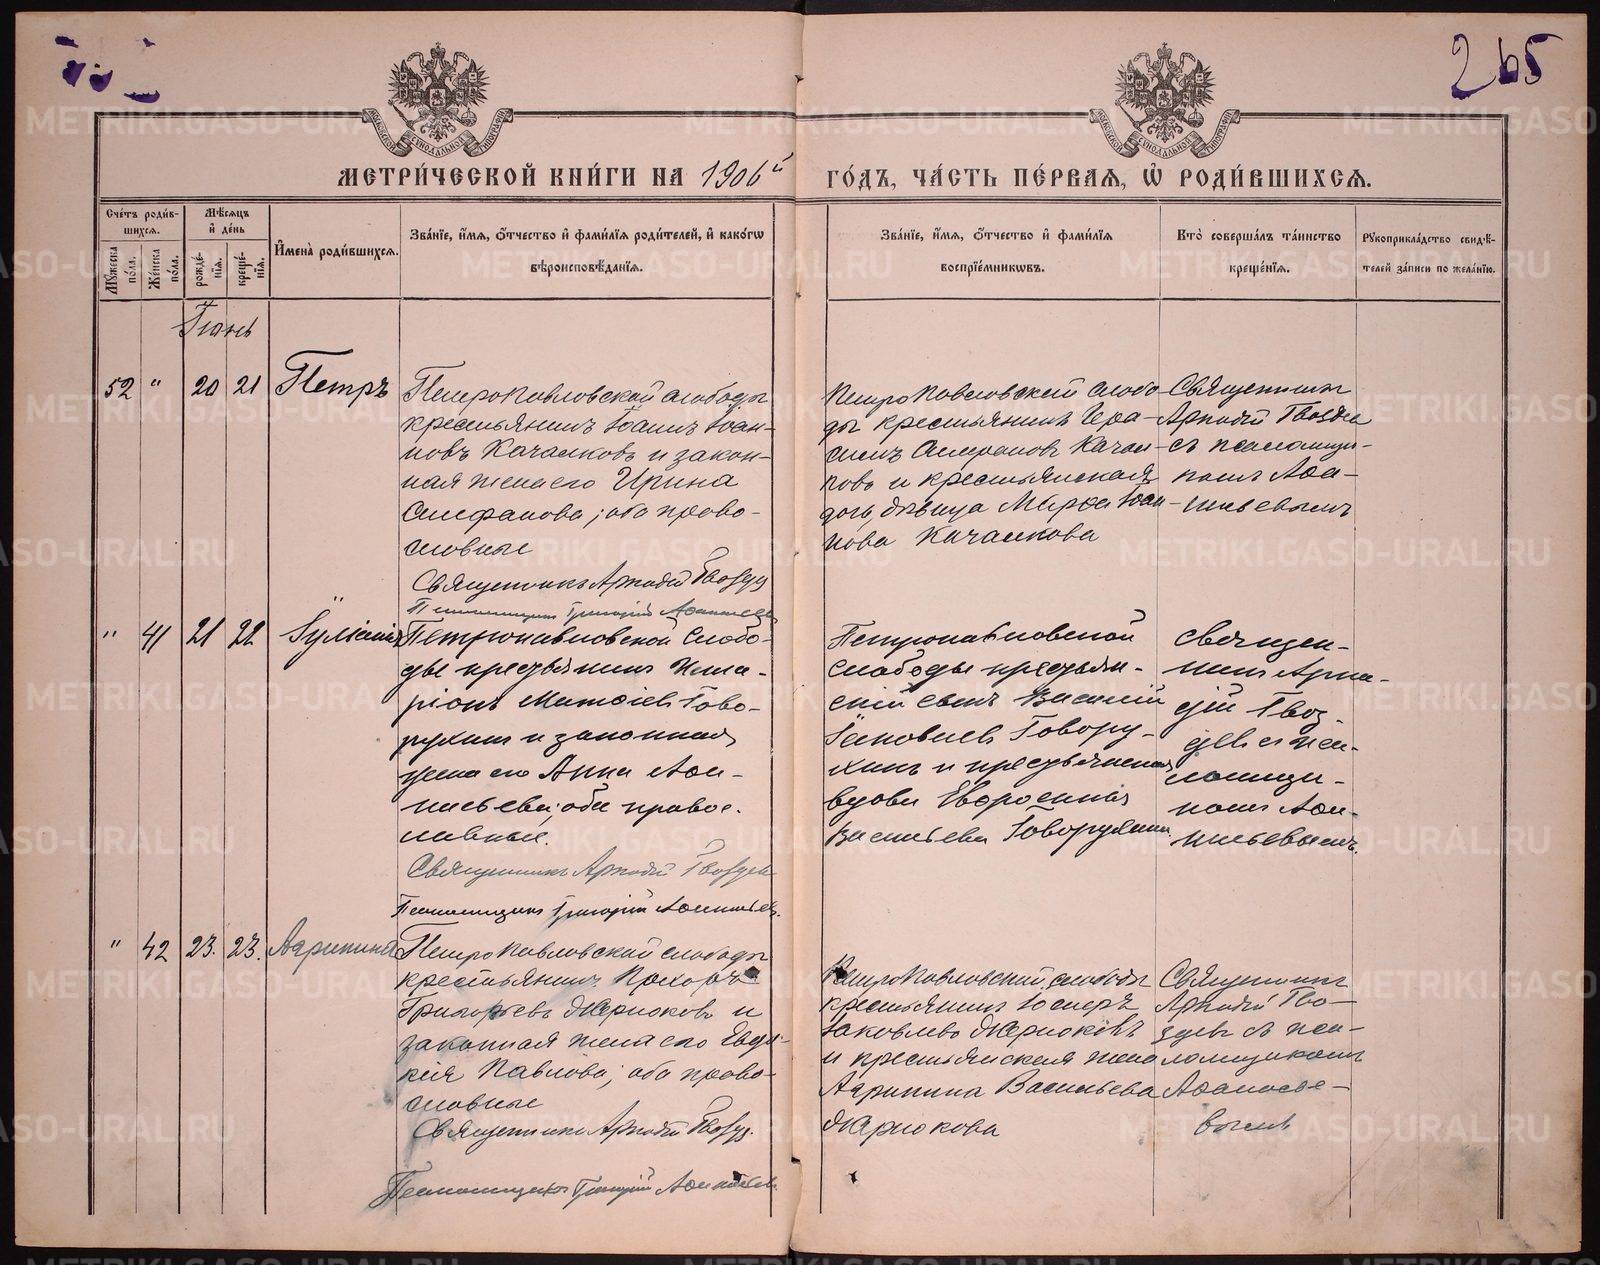 265
МЕТРИ́ЧЕСКОЙ КНИ́ГИ НА 1906й
ГО́ДЪ, ЧА́СТЬ ПЕ́РВАЯ, Ѡ РОДИ́ВШИХСЯ.
Сче́тъ роди́в-
шихся.
Мꙋ́жеска по́ла.
Же́нска по́ла.
Мѣ́сяцъ
и҆ де́нь
рожде́-
нїя.
креще́-
нїя.
И҆мена̀ роди́вшихся.
Зва́нїе, и҆́мя, ѻ҆́тчество и҆ фами́лїя роди́телей, и҆ како́гѡ
вѣроисповѣ́данїя.
Зва́нїе, и҆́мя, ѻ҆́тчество и҆ фами́лїя
воспрїе́мникѡвъ.
Кто̀ соверша́лъ та́инство
креще́нїя.
Рꙋкоприкла́дство свидѣ́-
телей за́писи по жела́нїю.
Іюнь
52 " 20 21 Петръ
Петропавловской слободы
крестьянинъ Іоаннъ Іоан-
новъ Качалковъ и закон-
ная жена его Ирина
Стефанова; оба право-
славные
Священникъ Аркадій Гвозд
Псаломщикъ Григорій Аѳанасьевъ
Петропавловской слобо-
ды крестьянинъ Гера-
симъ Качал-
ковъ и крестьянская
дочь дѣвица Марѳа Іоан-
нова Качалкова
Священникъ
Аркадій Гвоздев
съ псаломщи-
комъ Аѳа-
насьевымъ
" 41 21 22 Іуліанія
Петропавловской Слобо-
ды крестьянинъ Илла-
ріонъ Гово-
рухинъ и законная
жена его Анна Аѳа-
насьева; оба правос-
лавные.
Священникъ Аркадій Гвоздев
Псаломщикъ Григорій Аѳанасьев.
Петропавловской
слободы крестьян-
скій сынъ Василій
Говору-
хинъ и крестьянская
вдова Евфросинія
Васильева Говорухина.
Священ-
никъ Арка-
дій Гвоз-
девъ с псa-
ломщи-
комъ Аѳа-
насьевымъ.
" 42 23. 23. Агрипина
Петропавловской слободы
крестьянинъ Прохоръ
Григорьевъ Жарюковъ и
законная жена его Евдо-
кія Павлова; оба право-
славные
Священникъ Аркадій Гвозд.
Псаломщикъ Григорій Аѳанасьев.
Петропавловской слободы
крестьянинъ Іосифъ
Іаковлевъ Жарюковъ
и крестьянская жена
Агрипина Васильева
Жарюкова
Священникъ
Аркадій Гво-
здевъ съ пса-
ломщикомъ
Аѳанасье-
вымъ
METRIKI.GASO-URAL.RU